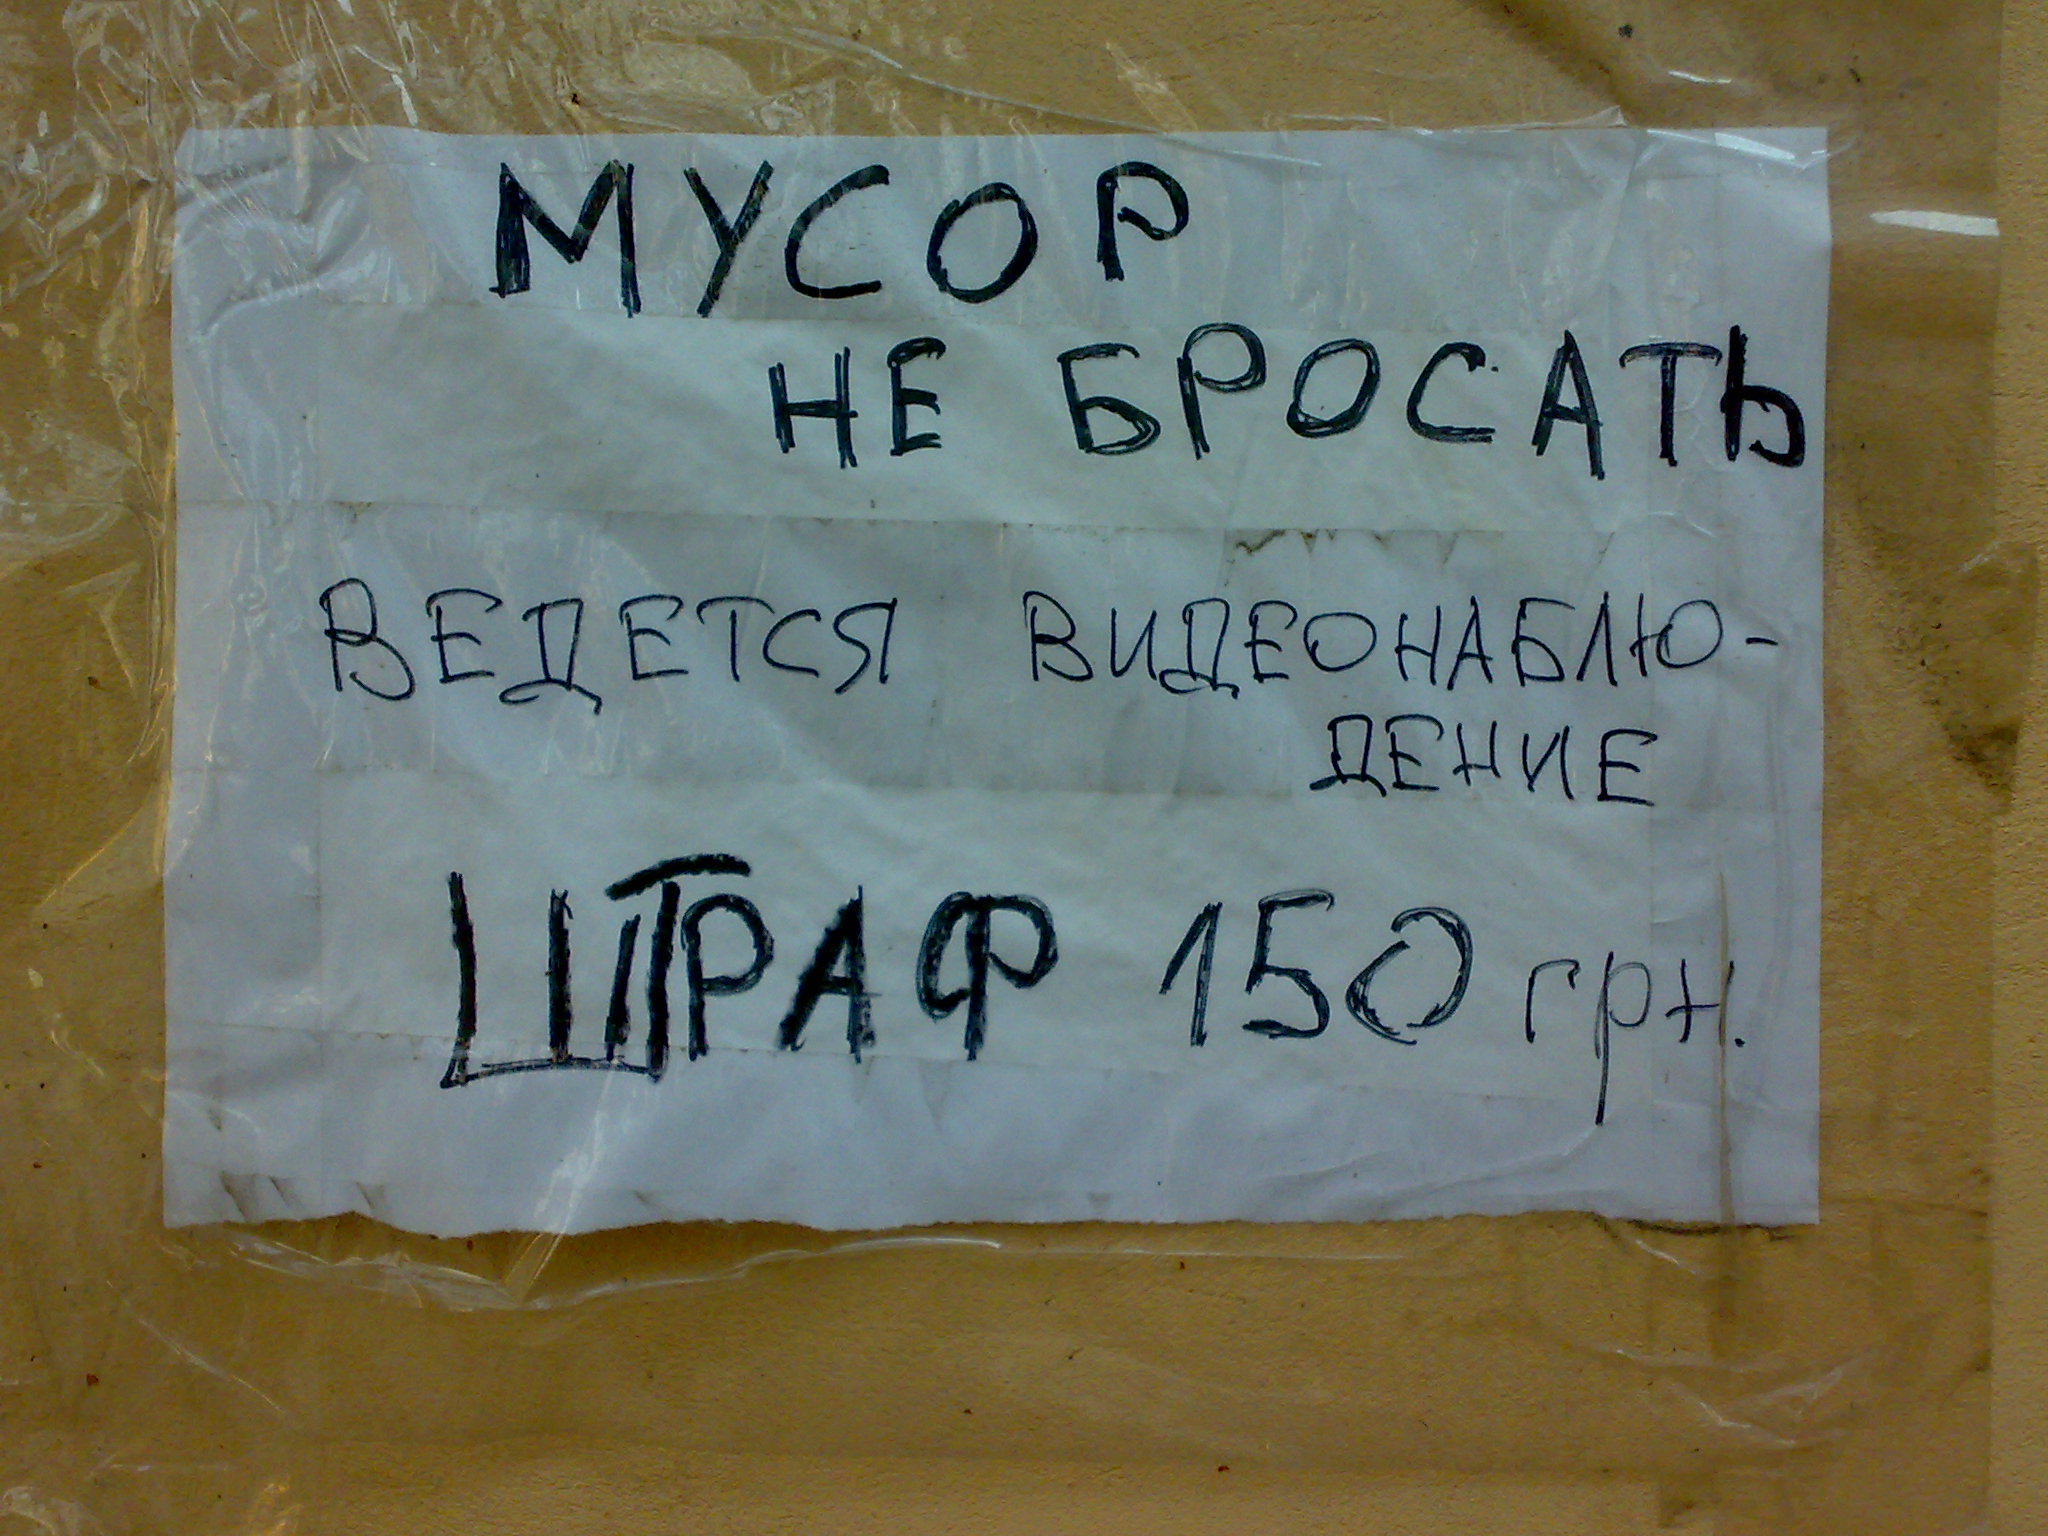 МУСОР
НЕ БРОСАТЬ
ВЕДЕТСЯ ВИДЕОНАБЛЮ-
ДЕНИЕ
ШТРАФ 150 грн.